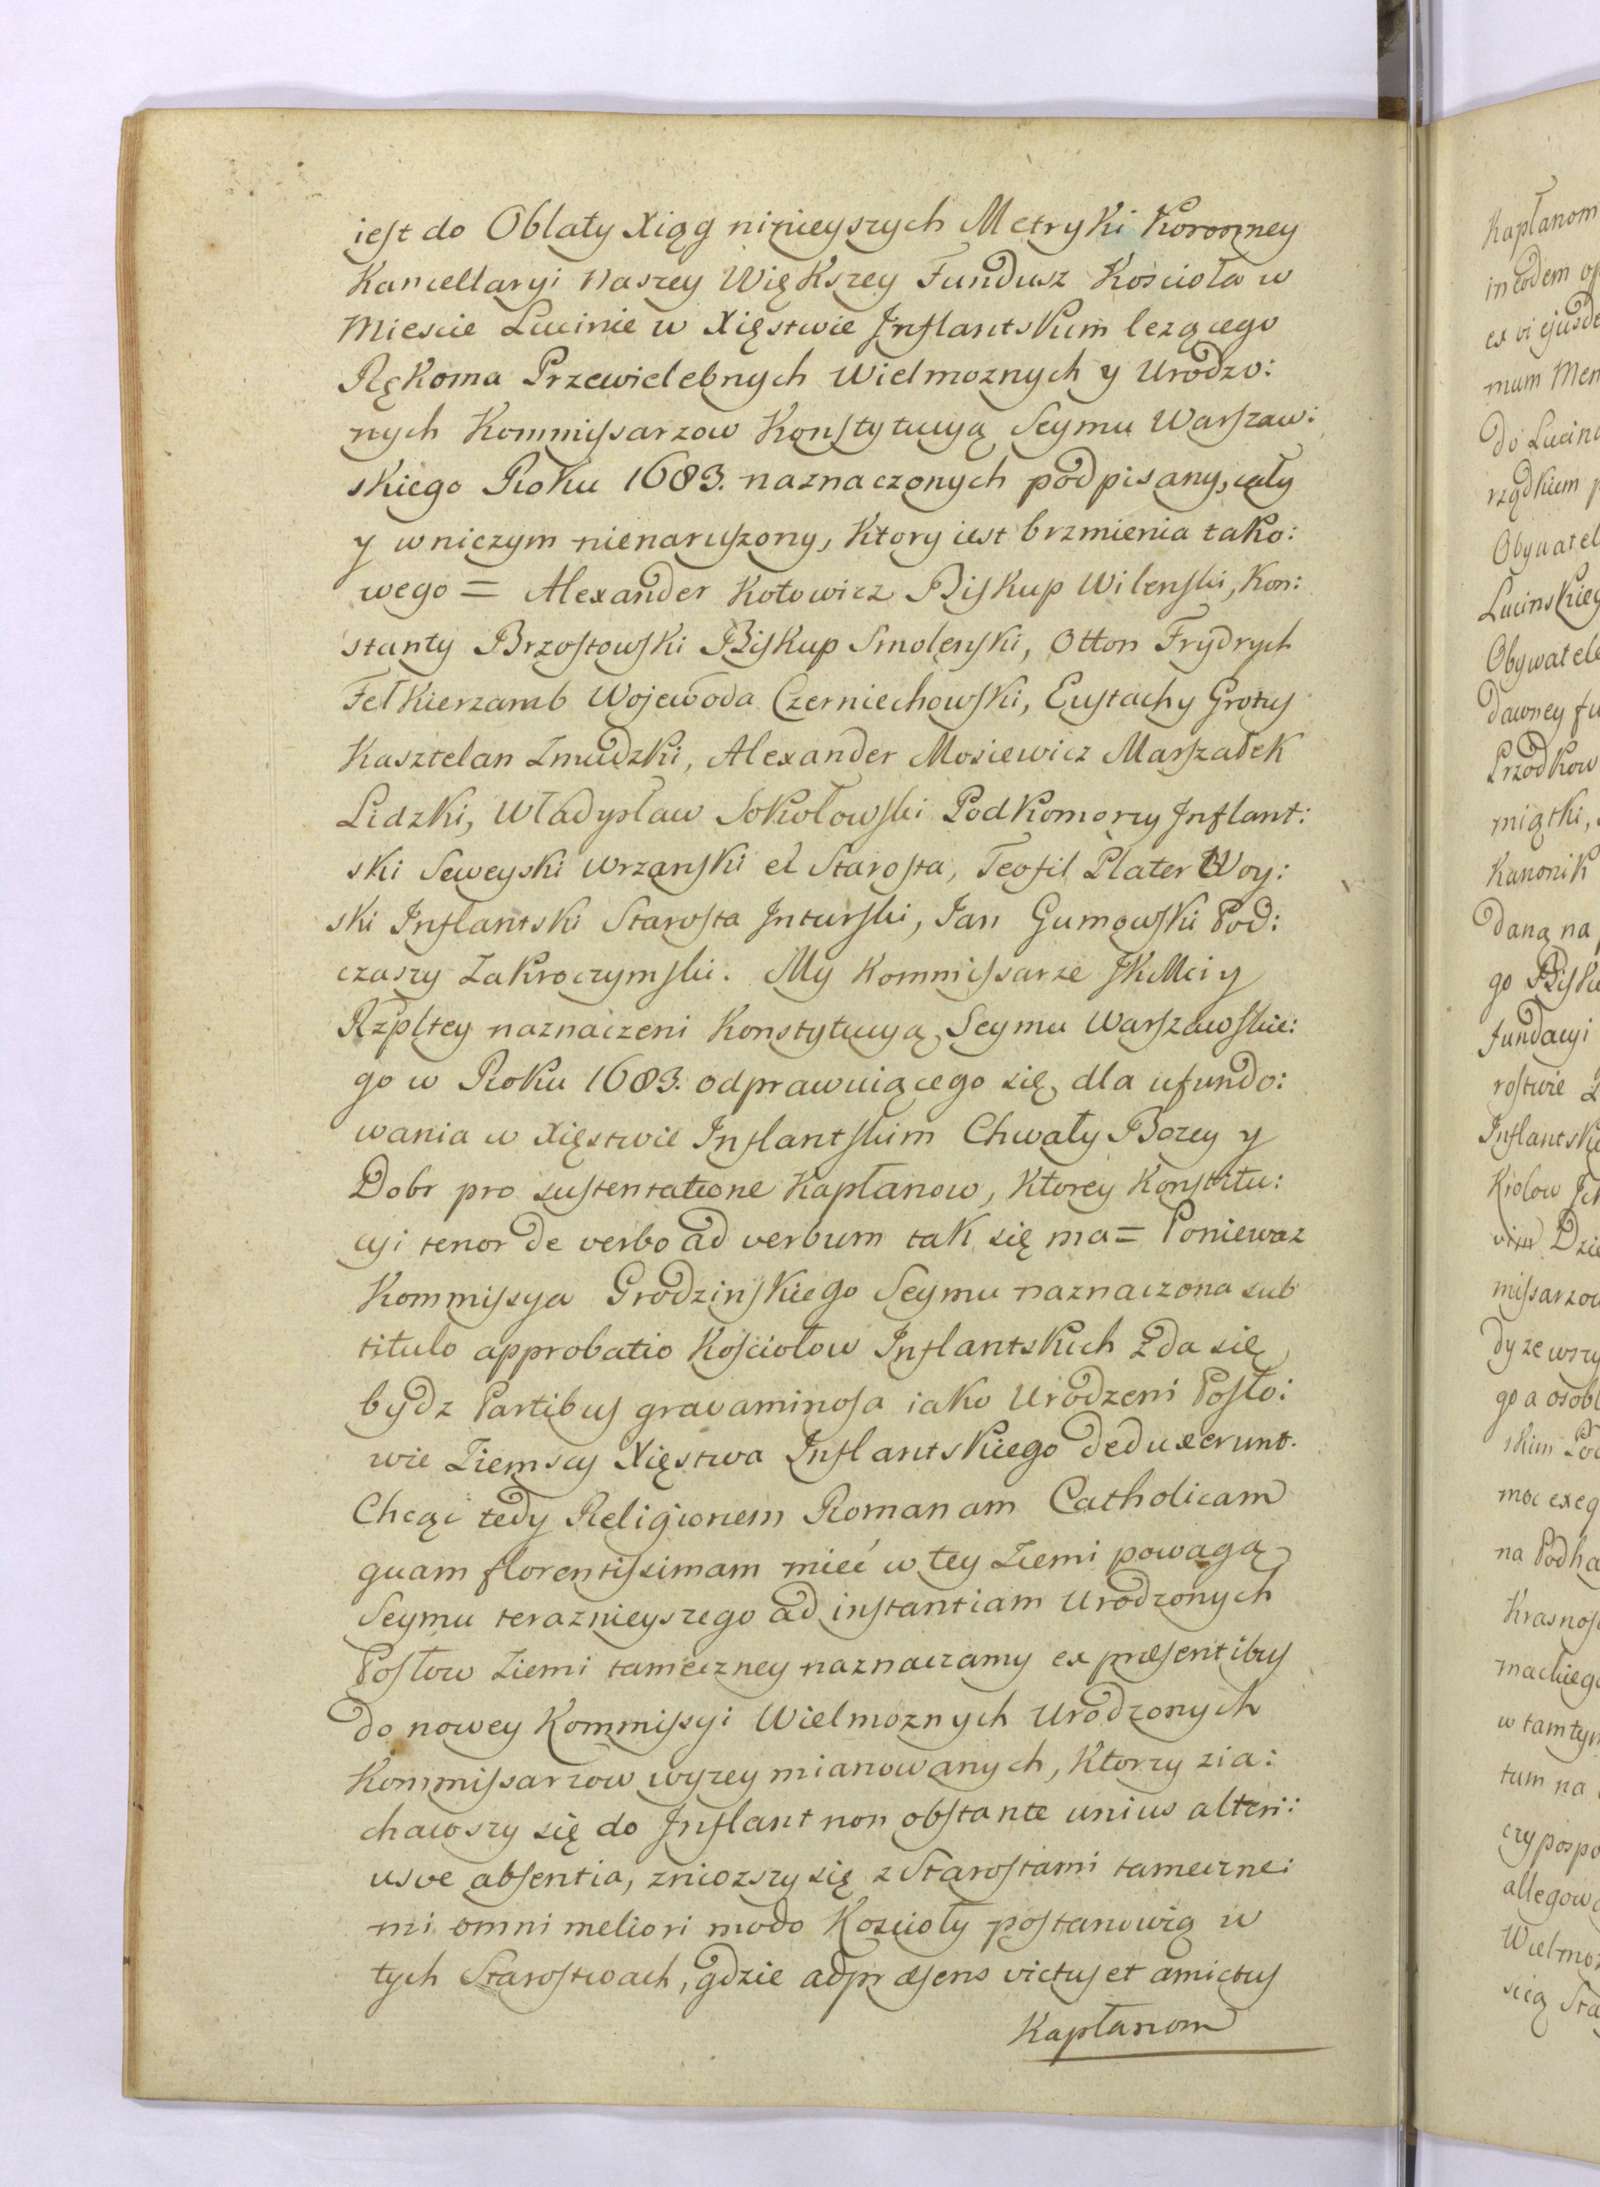 iest do Oblaty Xiąg ninieyszych Metryki Koronney
Kancellaryi Naszey Większey Fundusz Kościoła w
Miescie Lucinie w Xięstwie Inflantskim lezącego
Rękoma Przewielebnych Wielmoznych y Urodzo:
nych Kommissarzow Konstytucyą Seymu Warszaw:
skiego Roku 1683. naznaczonych podpisany, cały
y wniczym nienaruszony, Ktory iest brzmienia tako:
wego = Alexander Kotowicz Biskup Wilenski, Kon:
stanty Brzostowski Biskup Smolenski, Otton Frydrych
Felkierzamb Wojewoda Czerniechowski, Eustachy Grotus
Kasztelan Zmudzki, Alexander Mosiewicz Marszałek
Lidzki, Władysław Sokołowski Podkomorzy Inflant:
ski Seweyski Wrzanski et Starosta, Teofil Plater Woy:
ski Inflantski Starosta Inturski, Jan Gumowski Pod:
czaszy Zakroczymski. My Kommissarze JKMci y
Rzpltey naznaczeni Konstytucyą Seymu Warszawskie:
go w Roku 1683. odprawuiącego się, dla ufundo:
wania w Xięstwie Inflantskim Chwały Bozey y
Dobr pro sustentatione Kapłanow, Ktorey Konstitu:
cyi tenor de verbo ad verbum tak się ma = Poniewaz
Kommissya Grodzinskiego Seymu naznaczona sub
titulo approbatio Kościołow Inflantskich zda się
bydz Partibus gravaminosa iako Urodzeni Posło:
wie Ziemscy Xięstwa Inflantskiego deduxerunt.
Chcąc tedy Religionem Romanam Catholicam
quam florentissimam mieć w tey Ziemi powagą
Seymu teraznieyszego ad instantiam Urodzonych
Posłow Ziemi tameczney naznaczamy ex præsentibus
do nowey Kommissyi Wielmoznych Urodzonych
Kommissarzow wyzey mianowanych, Ktorzy zia:
chawszy się do Inflant non obstante unius alteri:
usve absentia, zniozszy się z Starostami tameczne:
mi omni meliori modo Kościoły postanowią w
tych Starostwach, gdzie adpræsens victus et amictus
Kapłanom
Kapłanom
do Lucina
Obywatel
dawney fu
Przodkow
miątki,
Kanonik
daną na
go Bisku
fundacyi
Inflantski
missarzow
na Podha
w tamtym
tum na
czypospo